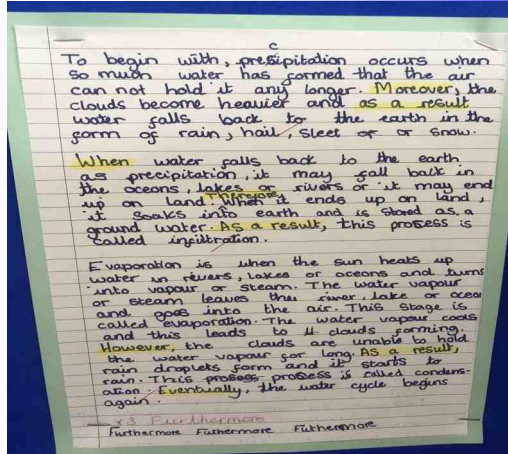 c
To begin with, presipitation occurs when
so much water has formed that the air
can not hold it any longer. Moreover, the
clouds become heavier and as a result
water falls back to the earth in the
form of rain, hail, sleet or or snow.
When water falls back to the earth
as precipitation, it may fall back in
the oceons, lakes or rivers or it may end
up on land. When it ends up on land,
Therefore
it soaks into earth and is stored as a
ground water. As a result, this process is
called infiltration.
Evaporation is when the sun heats up
water in rivers, lakes or oceons and turns
into vapour or steam. The water vapour
or steam leaves the river, lake or oceon
and goes into the air. This stage is
called evaporation. The water vapour cools
and this leads to clouds forming.
However, the clouds are unable to hold
the water vapour for long. As a result,
rain droplets form and it starts to
rain. This process is called condens-
ation. Eventually, the water cycle begins
again.
x3 Furthermore
Furthermore Futhermore Futhermore